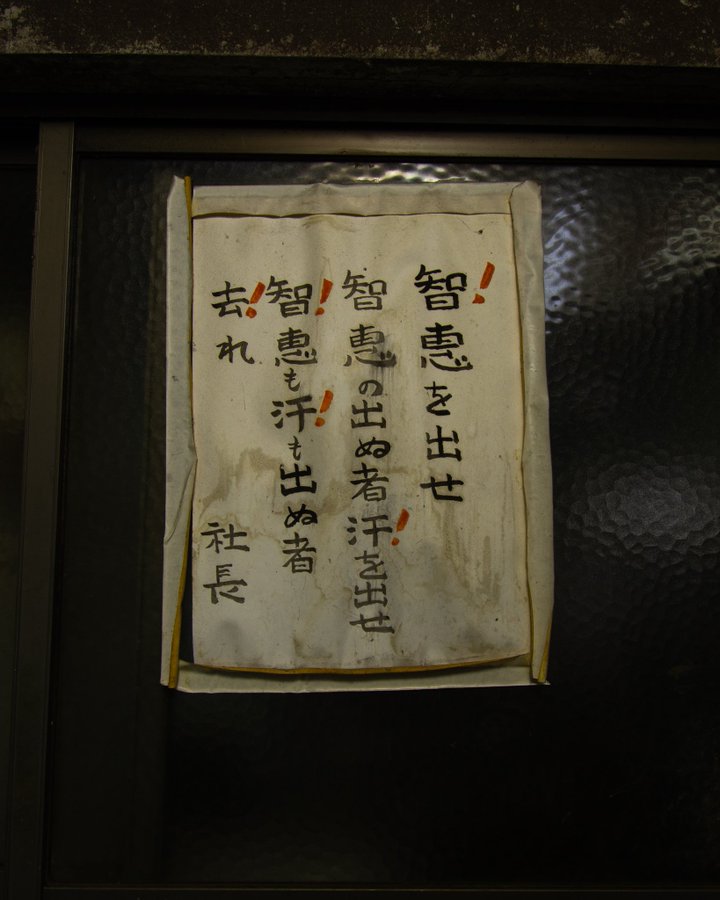 智!恵を出せ
智恵の出ぬ者汗!を出せ
智!恵も汗!も出ぬ者
去!れ
社長